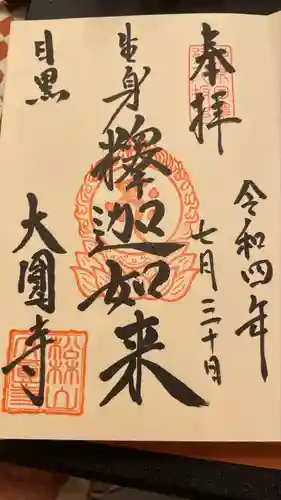 奉拝
令和四年
七月三十日
生身
釋迦如来
目黒
大圓寺